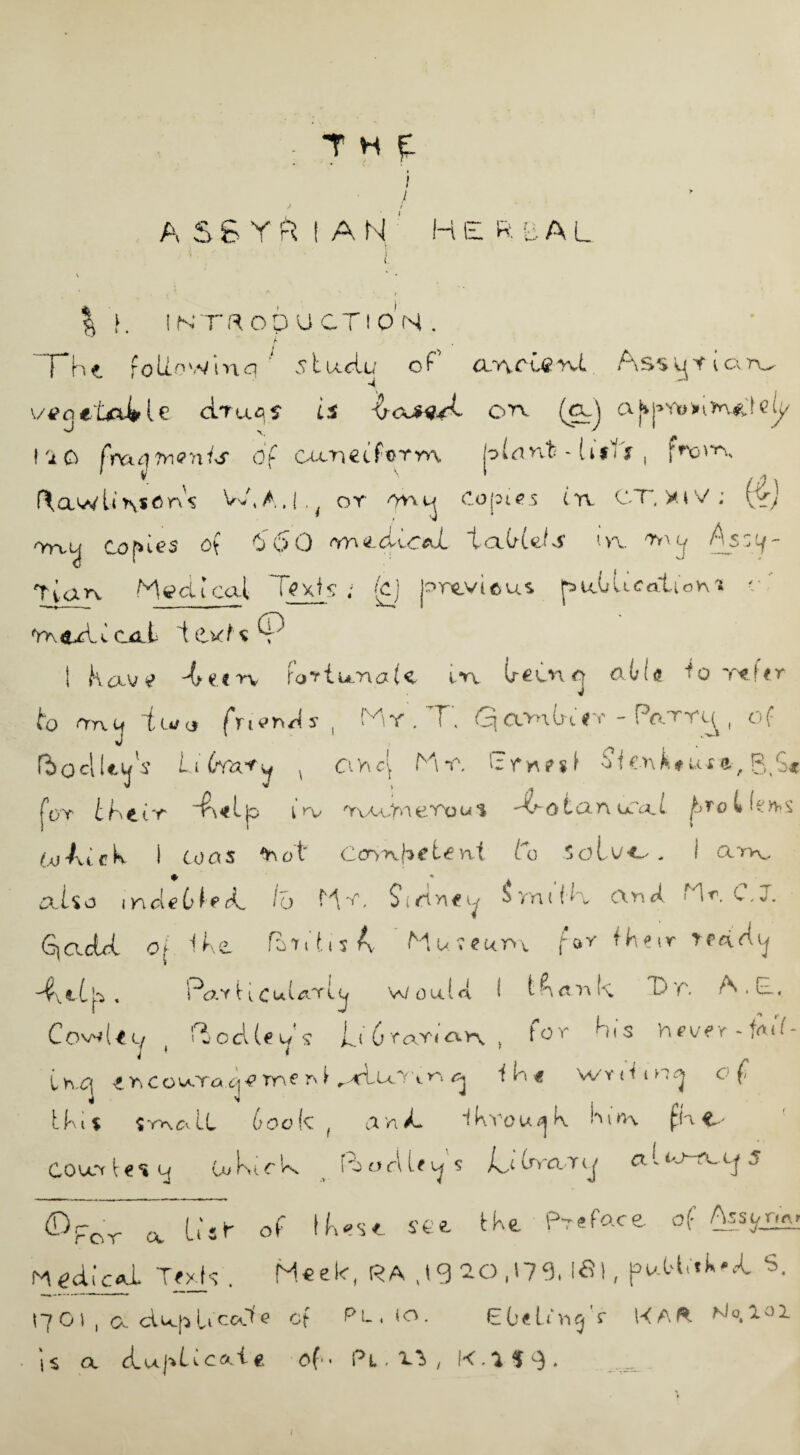 THE
ASSYRIAN HERBAL
§ 1. INTRODUCTION.
The following study of ancient Assyrian
vegetable drugs is based on (a) approximately
120 fragments of cuneiform plant-lists, from
Rawlinson's W.A.I., or my copies in CT. XIV; (b)
my copies of 660 medical tablets in my Assy-
rian Medical Texts; (c) previous publications of
medical texts ①
I have been fortunate in being able to refer
to my two friends, Mr. T. Gambier-Parry, of
Bodley's Library, and Mr. Ernest Stenhouse, B.Sc
for their help in numerous botanical problems
which I was not competent to solve. I am
also indebted to Mr. Sidney Smith and Mr. C.J.
Gadd of the British Museum for their ready
help. Particularly would I thank Dr. A.E.
Cowley, Bodley's Librarian, for his never-fail-
ing encouragement during the writing of
this small book, and through him the
courtesy which Bodley's Library always
① For a list of these see the Preface of Assyrian
Medical Texts. Meek, RA, 1920, 179, 181, published S.
1701, a duplicate of PL. 10. Ebeling's KAR No. 202
is a duplicate of PL. 23, K.259.